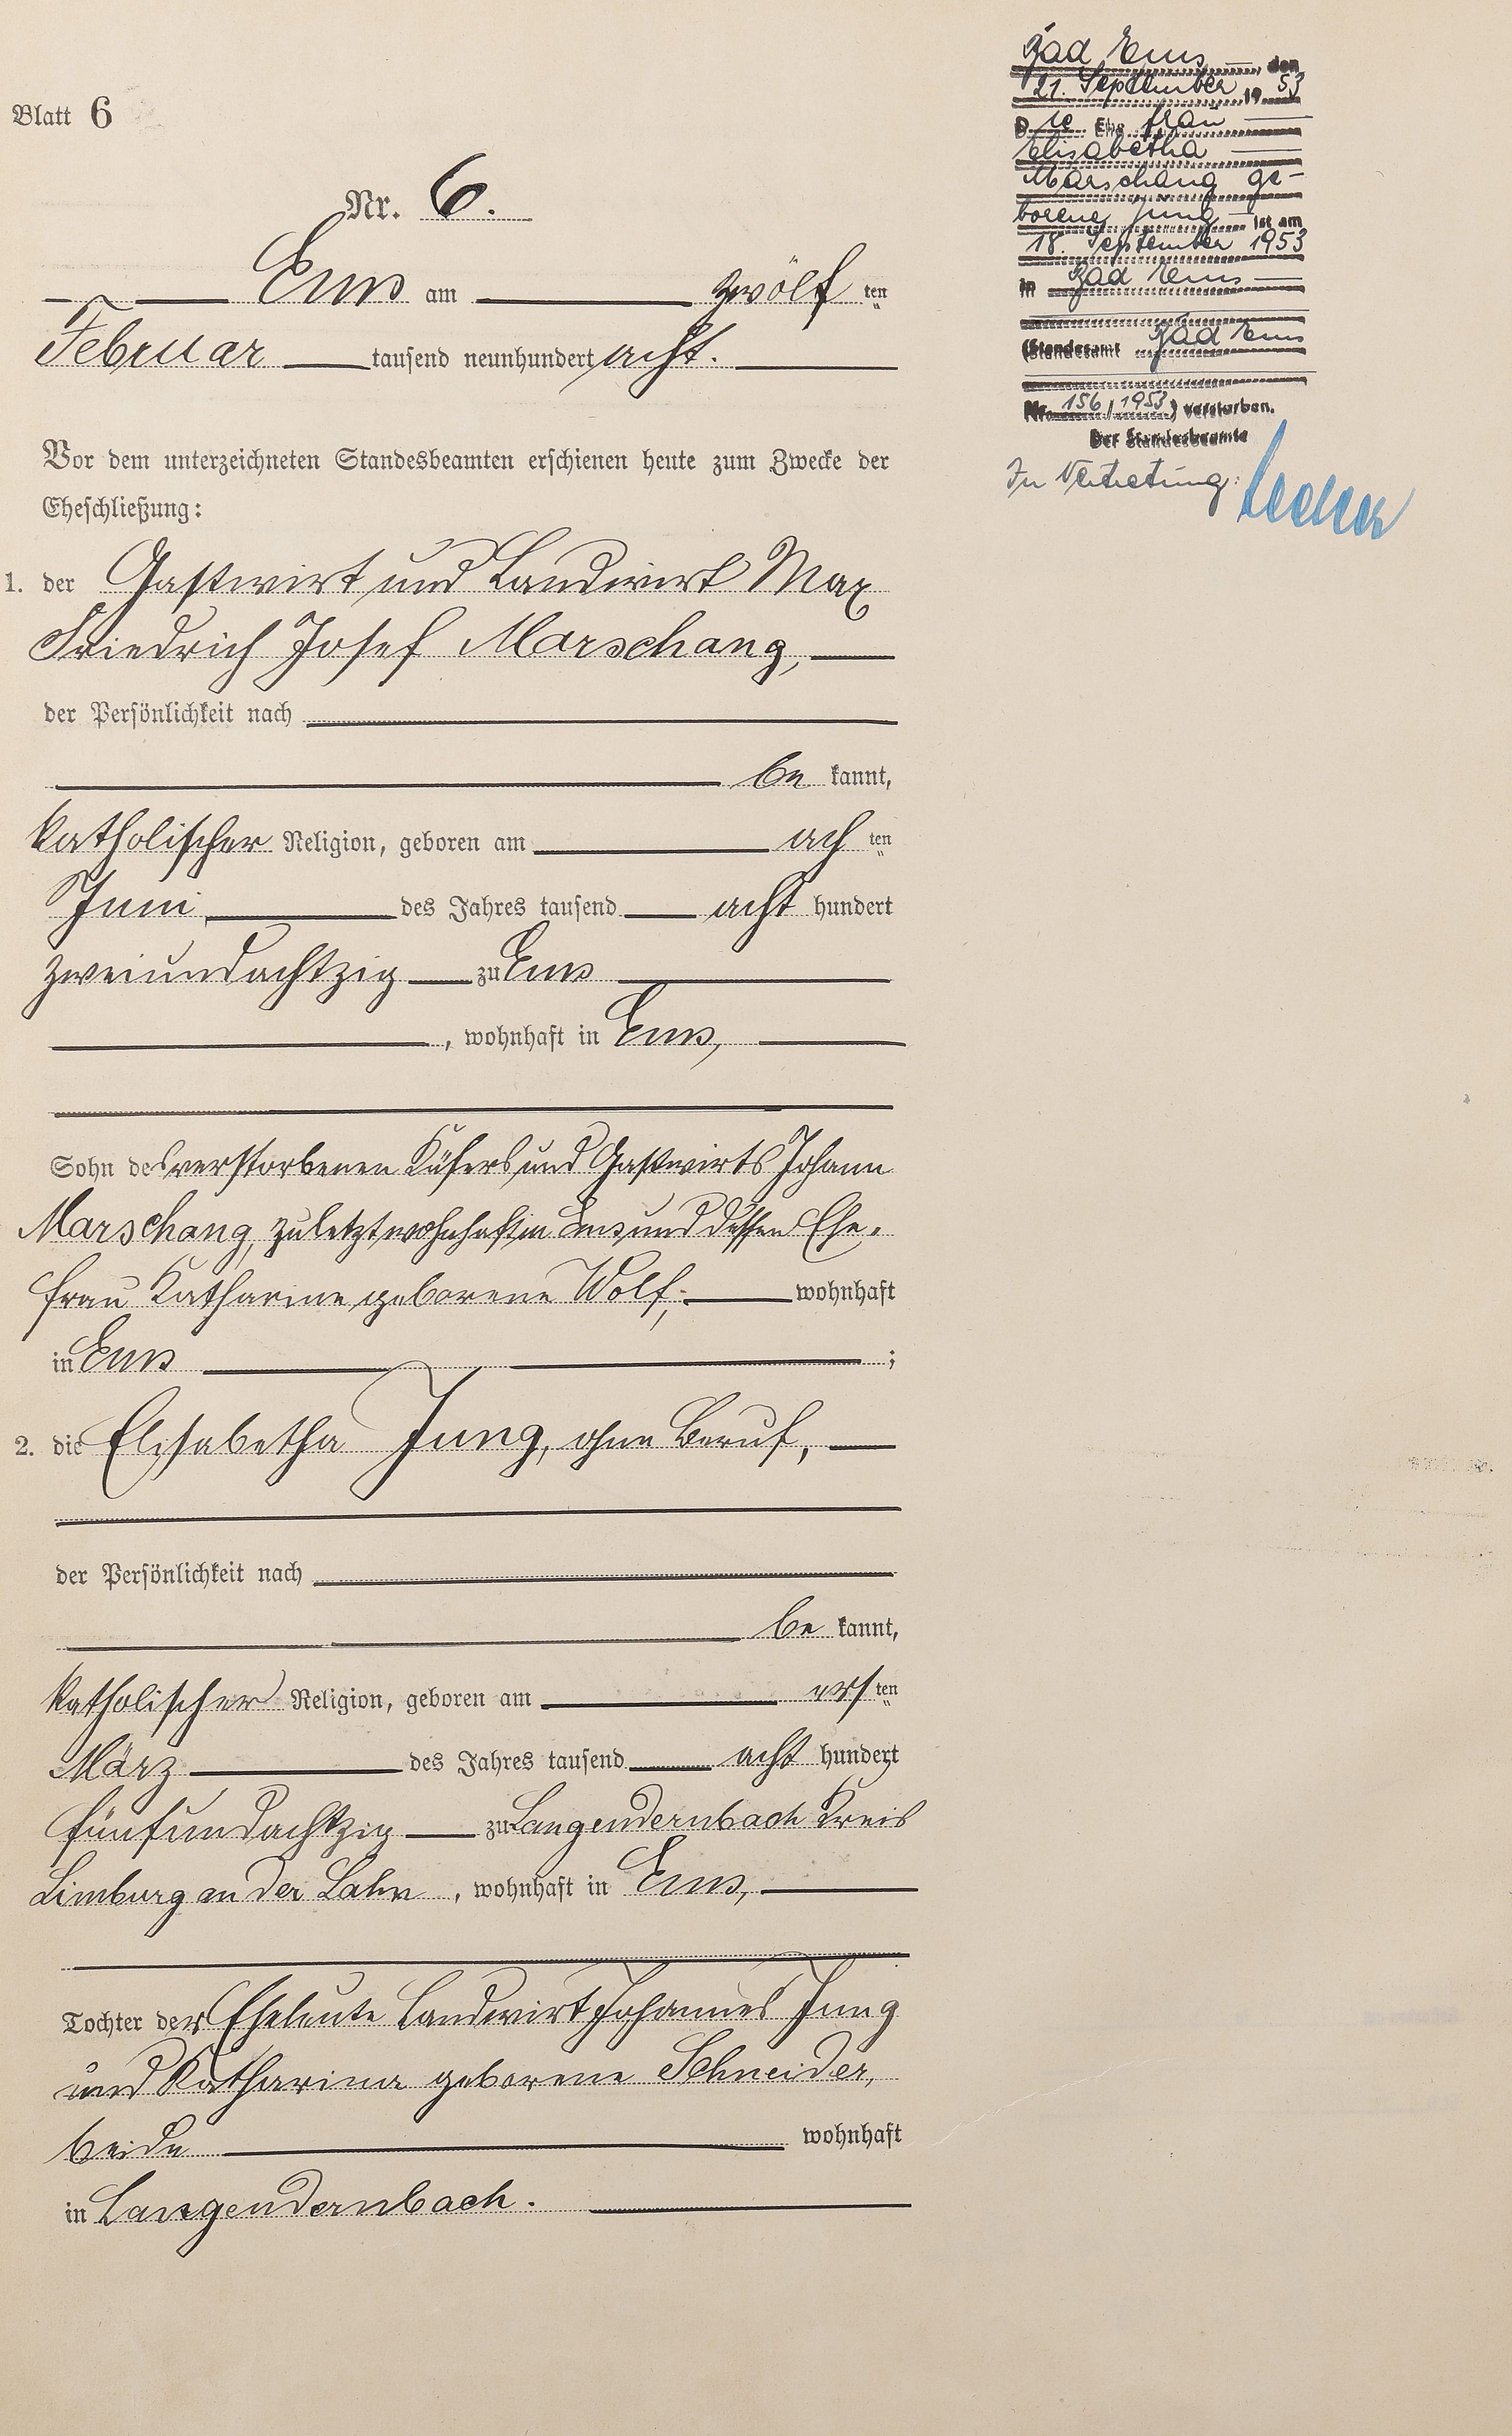 Blatt 6
Nr. 6.
Ems am zwölf ten
Februar tausend neunhundert acht.
Vor dem unterzeichneten Standesbeamten erschienen heute zum Zwecke der
Eheschließung:
1. der Gastwirt und Landwirt Max
Friedrich Josef Marschang,
der Persönlichkeit nach
be kannt,
katholischer Religion, geboren am ach ten
Juni des Jahres tausend acht hundert
zweiundachtzig zu Ems
, wohnhaft in Ems,
Sohn des verstorbenen Küfers und Gastwirts Johann
Marschang, zuletzt wohnhaft in Ems und dessen Ehe-
frau Katharine geborene Wolf, wohnhaft
in Ems ;
2. die Elisabetha Jung, ohne Beruf,
der Persönlichkeit nach
be kannt,
katholischer Religion, geboren am ers ten
März des Jahres tausend acht hundert
fünfundachtzig zu Langendernbach Kreis
Limburg an der Lahn, wohnhaft in Ems,
Tochter der Eheleute Landwirt Johannes Jung
und Katharina geborene Schneider,
beide wohnhaft
in Langendernbach.
Bad Ems, den
21. September 1953
Die Ehefrau
Elisabetha
Marschang ge-
borene Jung ist am
18. September 1953
in Bad Ems
(Standesamt Bad Ems
Nr. 156/1953) verstorben.
Der Standesbeamte
In Vertretung: